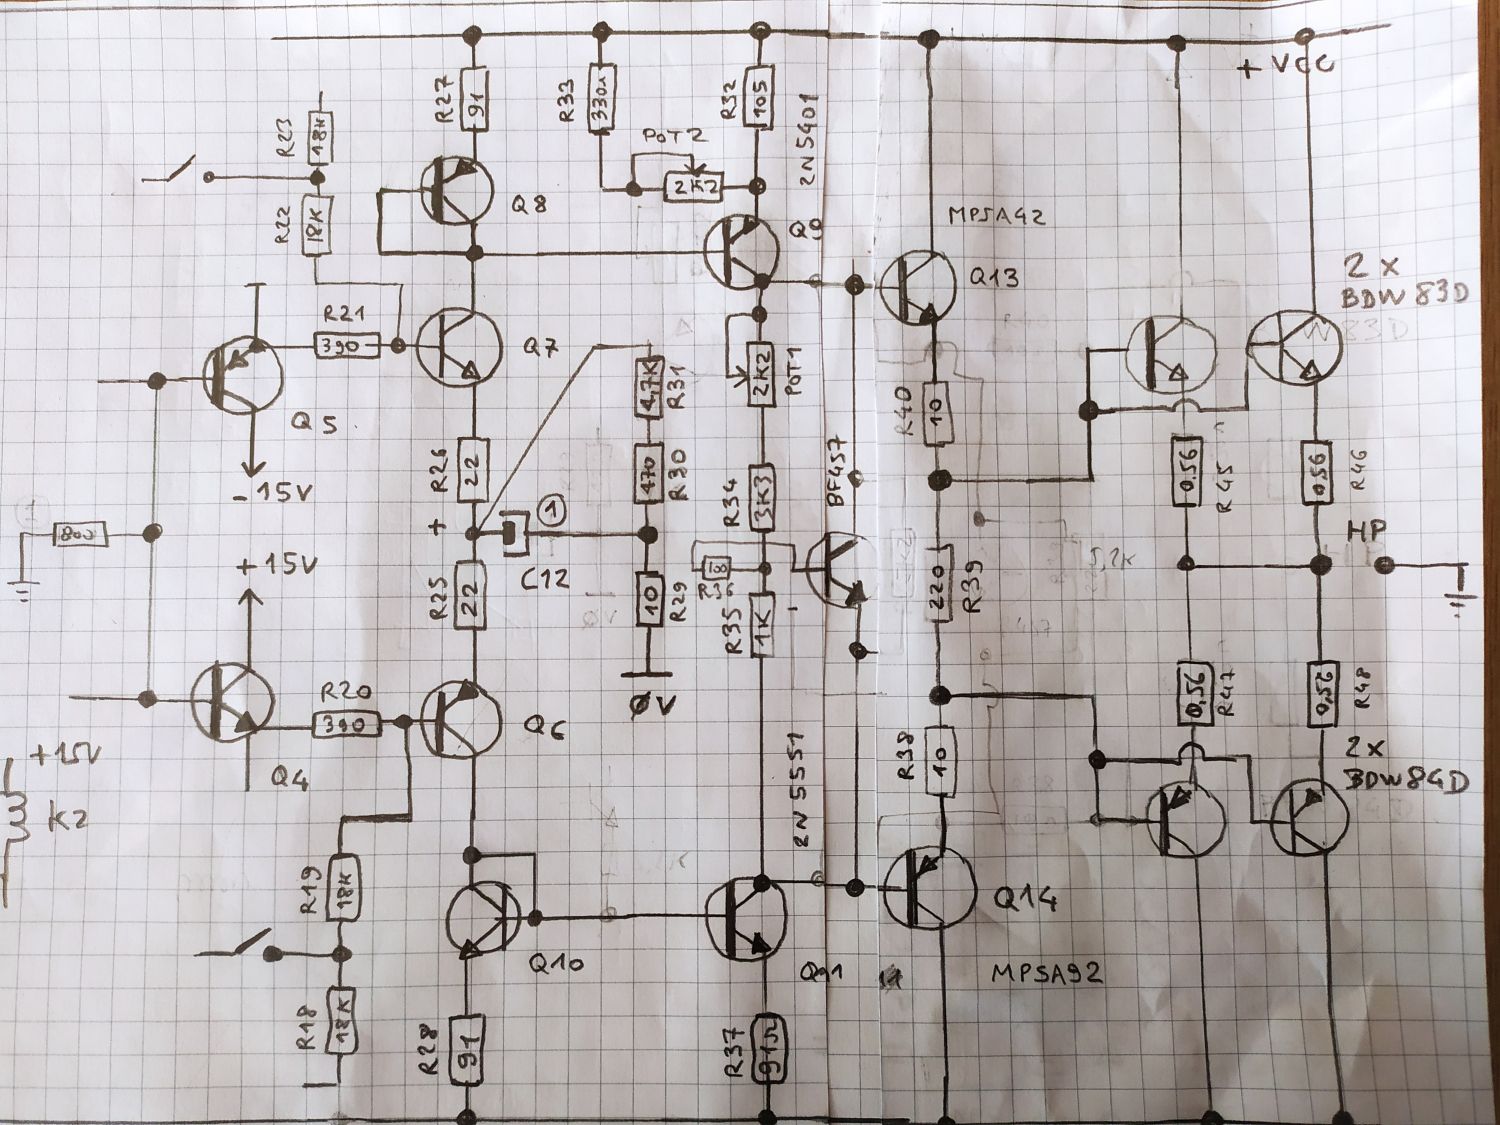 + VCC
R27
91
R33
330Ω
R32
105
2N5401
POT2
2K2
R23
18K
R22
18K
Q8
Q9
MPSA42
Q13
2 x
BDW 83D
W83D
R21
390
Q7
Q5
-15V
4,7K
R31
2K2
POT1
R40
10
R26
22
470
R30
R34
3K3
BF457
0.56
R45
0.56
R46
+
1
C12
800
HP
+15V
R25
22
10
R29
R35
1K
220
R39
5,2K
ØV
R20
390
Q6
Q4
+15V
K2
0,56
R47
0,56
R48
2x
BDW84D
2N5551
R38
10
R19
18K
Q10
Q14
Q11
MPSA92
R18
18K
R28
91
R37
91Ω